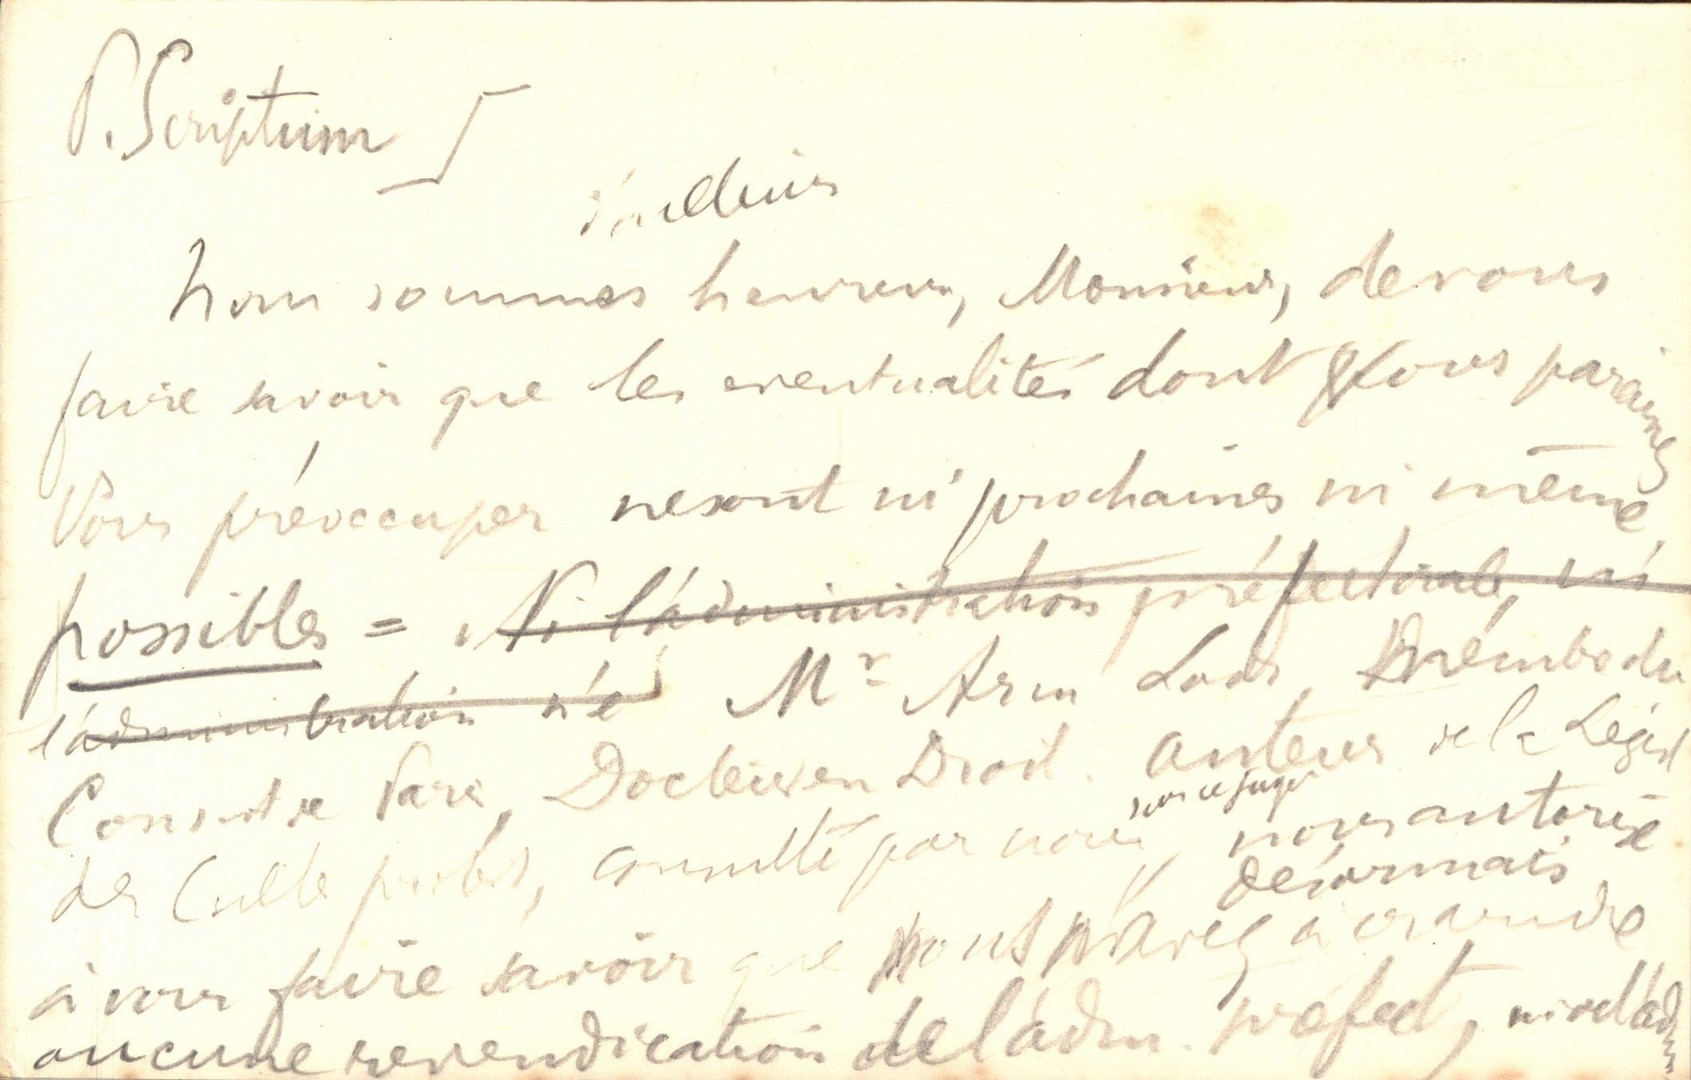 P. Scriptum
d'ailleurs
Nous sommes heureux, Monsieur, de vous
faire savoir que les eventualités dont Vous paraissez
Vous préoccuper ne sont ni prochaines ni même
possibles = Ni l'administration préfectorale, ni
l'administration n'e Mr Arm Lods, Membre du
Consist de Paris, Docteur en Droit. auteur de la Législ
sur ce sujet
des Culte protest, consulté par nous, nous autorise
désormais
à vous faire savoir que Vous n'avez à craindre
aucune revendication de l'adm. préfect, ni de l'adm